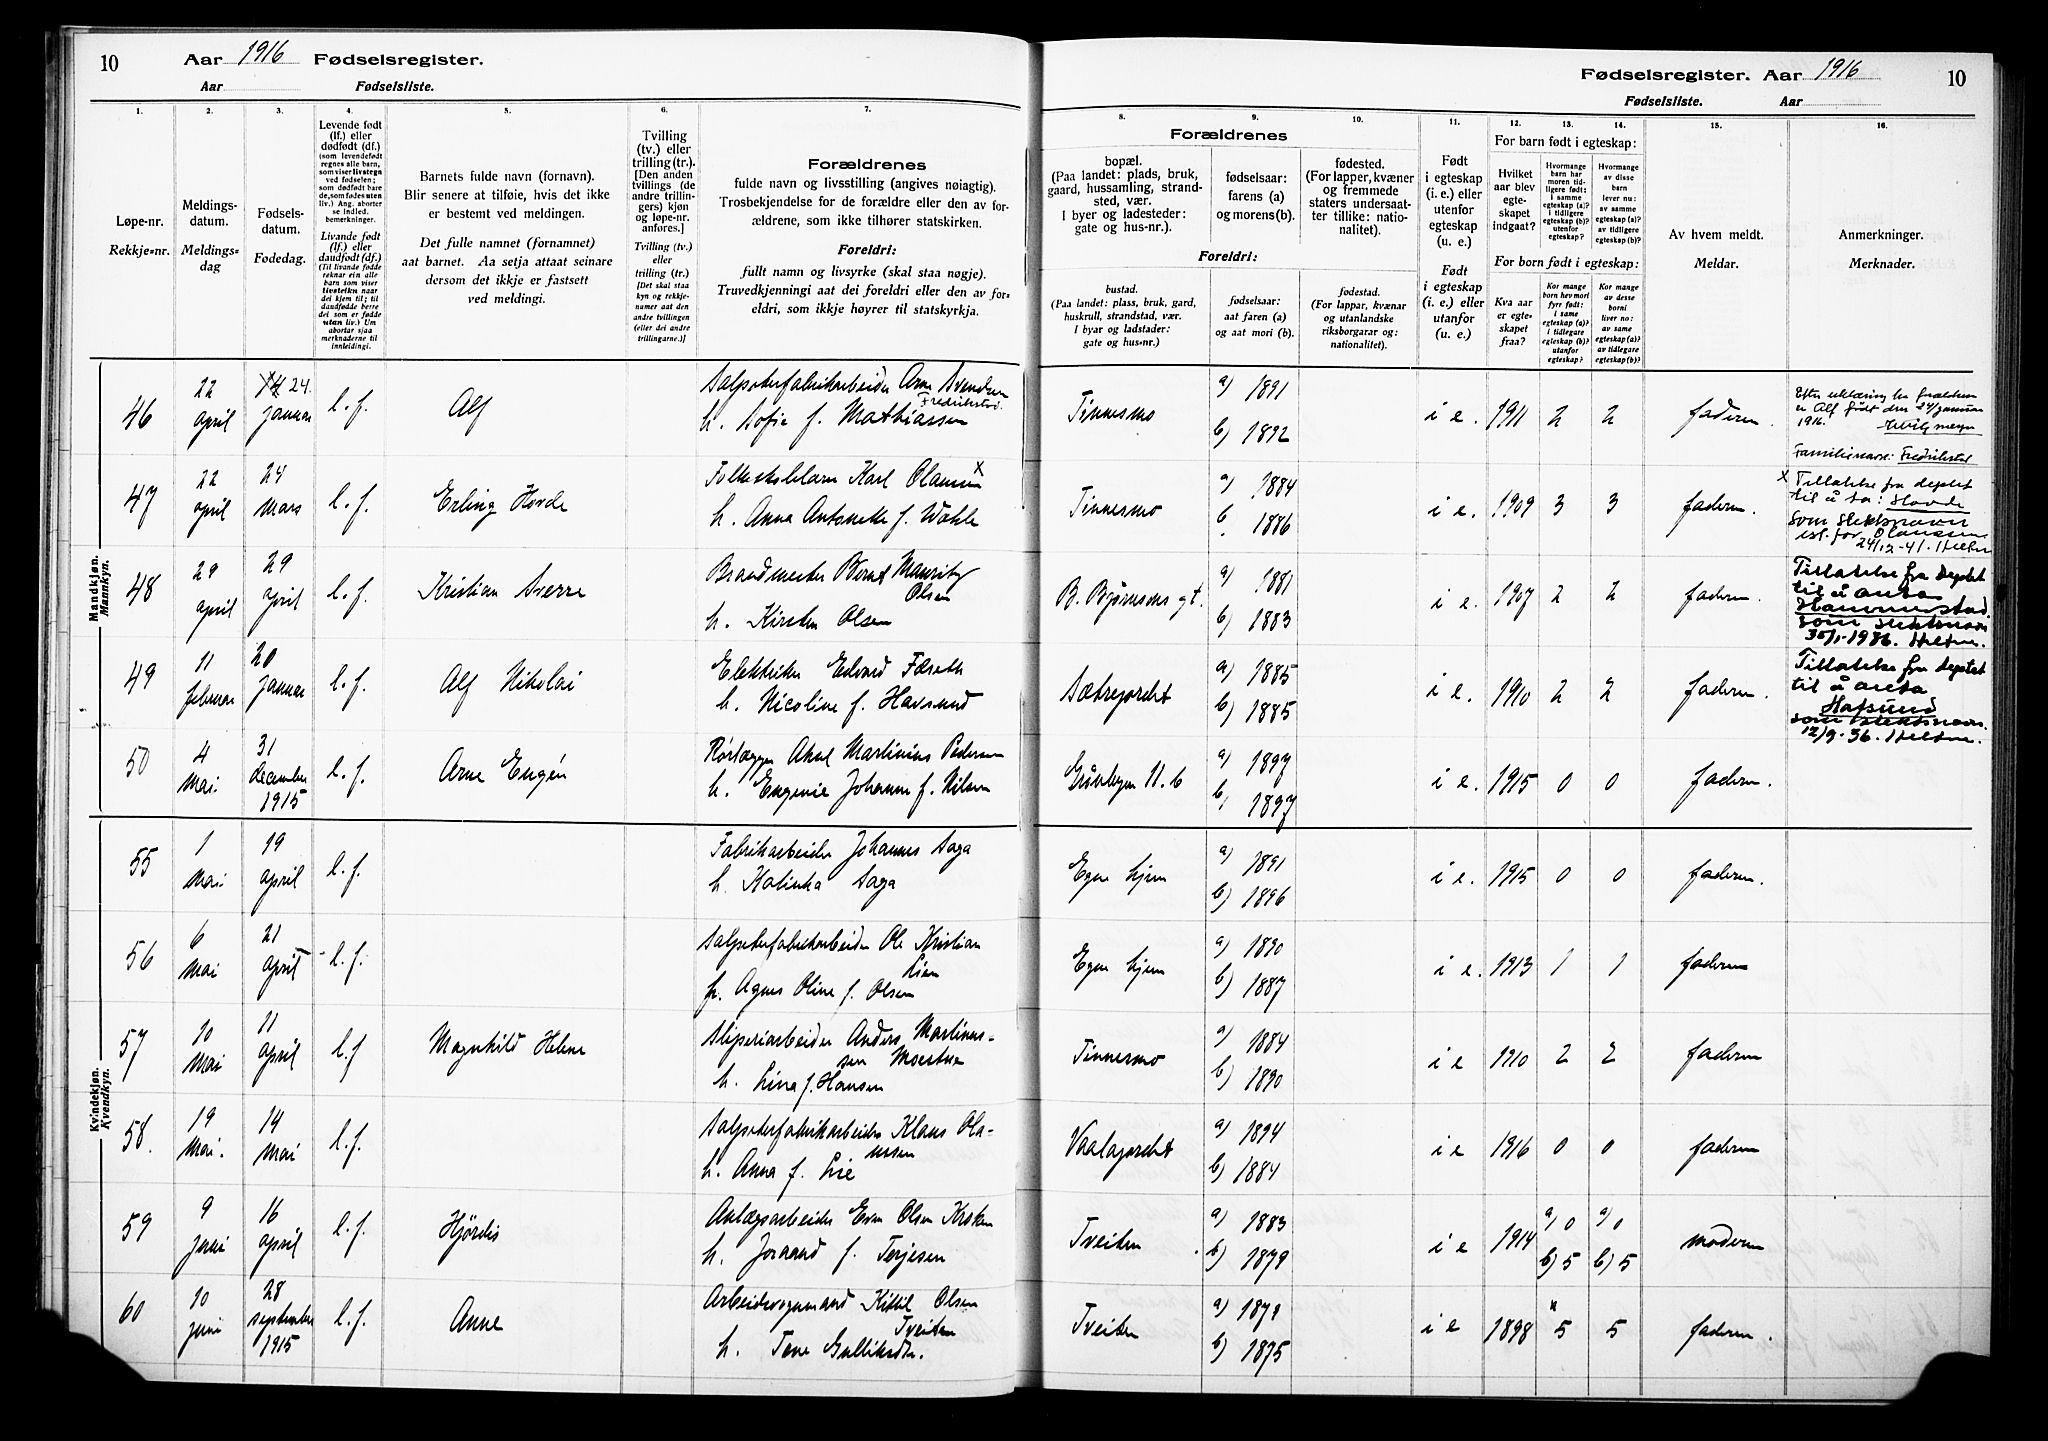 10
Aar 1916 Fødselsregister.
Aar Fødselsliste.
Fødselsregister. Aar 1916
10
Fødselsliste. Aar
1.
2.
3.
4.
5.
6.
7.
8.
9.
10.
11.
12.
13.
14.
15.
16.
Løpe-nr.
Rekkje-nr.
Meldings-
datum.
Meldings-
dag
Fødsels-
datum.
Fødedag.
Levende født
(lf.) eller
dødfødt (df.)
(som levendefødt
regnes alle barn,
som viser livstegn
ved fødselen;
som dødfødt bare
de, som fødes uten
liv.) Ang. aborter
se indled.
bemerkninger.
Livande født
(lf.) eller
daudfødt (df.)
(Til livande fødde
reknar ein alle
barn som viser
livsteikn naar
dei kjem til; til
daudfødde berre
dei som er fødde
utan liv.) Um
abortar sjaa
merknaderne til
innleidingi.
Barnets fulde navn (fornavn).
Blir senere at tilføie, hvis det ikke
er bestemt ved meldingen.
Det fulle namnet (fornamnet)
aat barnet. Aa setja attaat seinare
dersom det ikkje er fastsett
ved meldingi.
Tvilling
(tv.) eller
trilling (tr.).
[Den anden
tvillings (de
andre trillin-
gers) kjøn
og løpe-nr.
anføres.]
Tvilling (tv.)
eller
trilling (tr.)
[Det skal staa
kyn og rekkje-
namer aat den
andre tvillingen
(eller dei andre
trillingarne.)]
Forældrenes
fulde navn og livsstilling (angives nøiagtig).
Trosbekjendelse for de forældre eller den av for-
ældrene, som ikke tilhører statskirken.
Foreldri:
fullt namn og livsyrke (skal staa nøgje).
Truvedkjenningi aat dei foreldri eller den av for-
eldri, som ikkje høyrer til statskyrkja.
Forældrenes
bopæl.
(Paa landet: plads, bruk,
gaard, hussamling, strand-
sted, vær.
I byer og ladesteder:
gate og hus-nr.).
fødselsaar:
farens (a)
og morens (b).
fødested.
(For lapper, kvæner
og fremmede
staters undersaat-
ter tillike: natio-
nalitet).
Foreldri:
bustad.
(Paa landet: plass, bruk, gard,
huskrull, strandstad, vær.
I byar og ladstader:
gate og hus-nr.)
fødselsaar:
aat faren (a)
og aat mori (b).
fødestad.
(For lappar, kvænar
og utanlandske
riksborgarar og:
nationalitet).
Født
i egteskap
(i. e.) eller
utenfor
egteskap
(u. e.)
Født
i egteskap
(i. e.) eller
utanfor
(u. e.)
For barn født i egteskap:
Hvilket
aar blev
egte-
skapet
indgaat?
Hvormange
barn har
moren tid-
ligere født:
i samme
egteskap (a)?
i tidligere
egteskap (b)?
utenfor
egteskap?
Hvormange
av disse
barn
lever nu:
av samme
egteskap (a)?
av tidligere
egteskap (b)?
For born født i egteskap:
Kva aar
er egte-
skapet
fraa?
Kor mange
born hev mori
fyrr født:
i same
egteskap (a)?
i tidlegare
egteskap (b)?
utanfor
egteskap?
Kor mange
av desse
borni
liver no:
av same
egteskap (a)?
av tidlegare
egteskap (b)?
Av hvem meldt.
Meldar.
Anmerkninger.
Merknader.
Mandkjøn.
Mannkyn.
46
22
april
24.
januar
l.f.
Alf
Salpeterfabrikarbeider Arne Svendsen
Fredrikstad
h. Sofie f. Mathiassen
Tinnesmo
a) 1891
b) 1892
i e.
1911
2
2
faderen.
Efter erklæring fra forældrene
er Alf født den 24/januar
1916.
Familienavn: Fredrikstad
47
22
april
24
mars
l.f.
Erling Hovde
Folkeskolelærer Karl Olaussen x
h. Anna Antonette f. Wahle
Tinnesmo
a) 1884
b. 1886
i e.
1909
3
3
faderen.
x Tillatelse fra deptet
til å ta: Hovde
som slektsnavn
ist. for Olaussen
24/12-41. Helton
48
29
april
29
april
l.f.
Kristian Sverre
Brandmester Bernt Mauritz
Olsen
h. Kirsten Olsen
B. Bjørnsons gt.
a) 1881
b) 1883
i e.
1907
2
2
faderen.
Tillatelse fra deptet
til å anta
Hammerstad
som slektsnavn
30/1-1936. Helton.
49
11
februar
20
januar
l.f.
Alf Nikolai
Elektriker Edvard Færeth
h. Nicoline f. Havsund
Sætregordet
a) 1885
b) 1885
i e.
1910
2
2
faderen.
Tillatelse fra deptet
til å anta
Hafsund
som slektsnavn.
12/9-36. Helton.
50
4
mai.
31
december
1915
l.f.
Arne Eugén
Rørlægger Aksel Martinius Pedersen
h. Eugenie Johanne f. Nilsen
Gråvlegen 11. b
a) 1897
b, 1897
i e.
1915
0
0
faderen.
Kvindekjøn.
Kvendkyn.
55
1
mai.
19
april
l.f.
Fabrikarbeider Johannes Saga
h. Kalinka Saga
Egne hjem
a) 1891
b) 1896
i e.
1915
0
0
faderen.
56
6
mai
21
april
l.f.
Salpeterfabrikarbeider Ole Kristian
Lien
h. Agnes Oline f. Olsen
Egne hjem
a) 1890
b) 1887
i e.
1913
1
1
faderen
57
10
mai
11
april
l.f
Magnhild Helene
Sliperiarbeider Anders Martinus-
sen Moestue
h. Lina f. Hansen
Tinnesmo
a) 1884
b) 1890
i e
1910
2
2
faderen
58.
19
mai.
14
mai
l.f.
Salpeterfabrikarbeider Klaus Ola-
ussen
h. Anna f. Lie
Vaalagordet
a) 1894
b) 1884
i e
1916
0
0
faderen
59
9
juni
16
april
l.f.
Hjördis
Anlægsarbeider Even Olsen Kroken
h. Joraand f. Terjesen
Tveiten
a) 1883
b) 1879
i e
1914
a) 0
b) 5
a) 0
b) 5
moderen
60
10
juni
28
september
1915
l.f.
Anne
Arbeidsformand Kittil Olsen
Tveiten
h. Tone Gulliksdtr.
Tveiten
a) 1871
b) 1875
i e
1898
x
5
5
faderen.